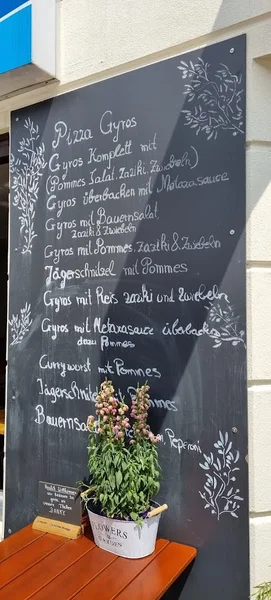 Pizza Gyros
Gyros Komplett mit
(Pommes Salat. Zaziki. Zwiebeln)
Gyros überbacken mit Metaxasauce
Gyros mit Bauernsalat.
Zaziki & Zwiebeln
Gyros mit Pommes. Zaziki & Zwiebeln
Jägerschnitzel mit Pommes
Gyros mit Reis zaziki und Zwiebeln
Gyros mit Metaxasauce überbacken
dazu Pommes
Currywurst mit Pommes
Jägerschnitzel mit Pommes
Peperoni
FLOWERS